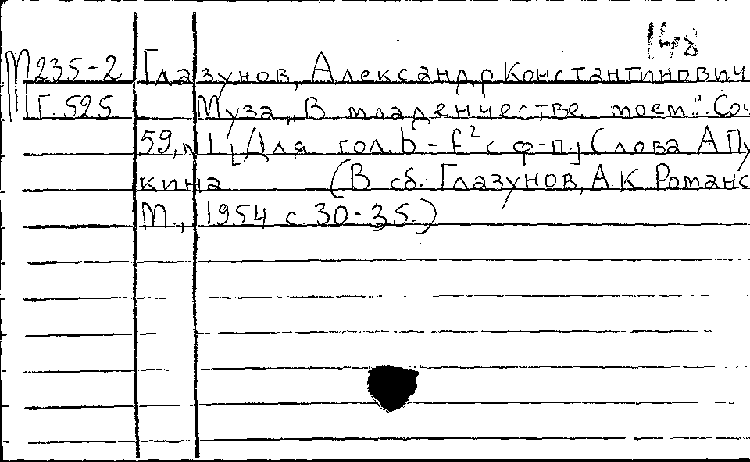 148
М235-2 Глазунов, Александр Константинович
Г.595 Муза „В младенчестве моем". Соч
59, №1 [Для гол. b - f² с ф-п.] Слова А Пу
кина (В сб. Глазунов, А К Романс
М., 1954 с 30-35.)